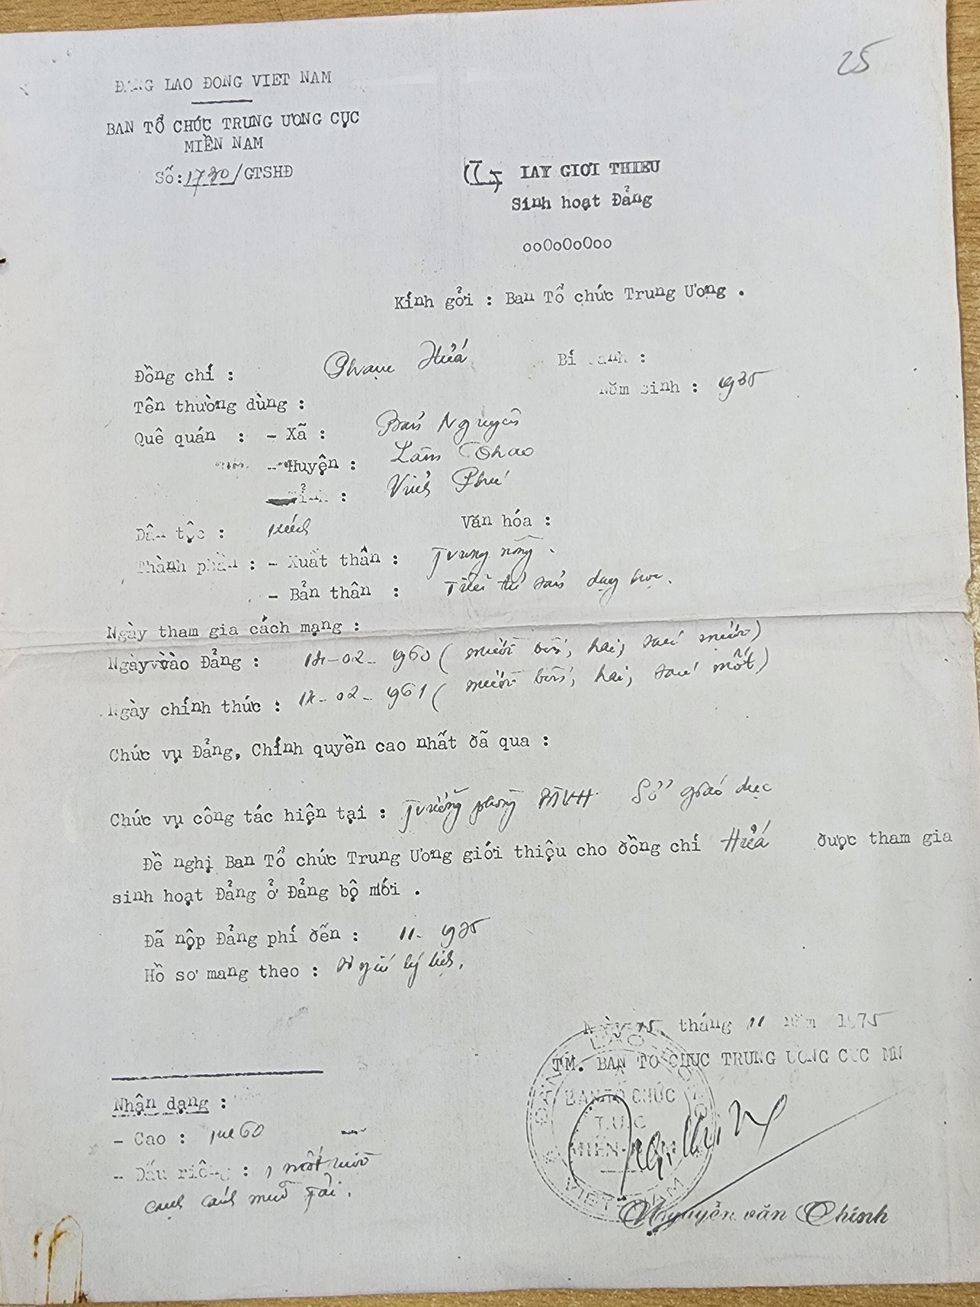 25
ĐẢNG LAO ĐỘNG VIET NAM
BAN TỔ CHỨC TRUNG ƯƠNG CỤC
MIỀN NAM
Số: 1730/GTSHĐ
IAY GIƠI THIEU
Sinh hoạt Đảng
ooOoOoOoo
Kính gởi : Ban Tổ chức Trung Ương .
Đồng chí : Phạm Huấ Bí danh :
Năm sinh : 1935
Tên thường dùng :
Quê quán : - Xã : Bản Nguyên
- Huyện : Lâm Thao
Tỉnh : Vĩnh Phú
Dân tộc : Kinh Văn hóa :
Thành phần : - Xuất thân : Trung nông .
- Bản thân : Tiểu tư sản dạy học.
Ngày tham gia cách mạng :
Ngày vào Đảng : 14-02-1960 ( mười bốn, hai, sáu mươi)
Ngày chính thức : 14-02-1961 ( mười bốn, hai, sáu mốt)
Chức vụ Đảng, Chính quyền cao nhất đã qua :
Chức vụ công tác hiện tại : Trưởng phòng BTVH Sở giáo dục
Đề nghị Ban Tổ chức Trung Ương giới thiệu cho đồng chí Huấ được tham gia
sinh hoạt Đảng ở Đảng bộ mới .
Đã nộp Đảng phí đến : 11-1975
Hồ sơ mang theo : lý lịch.
Ngày 15 tháng 11 năm 1975
TM. BAN TO CHUC TRUNG UONG CUC MN
BAN TỔ CHỨC
T.Ư.C
MIỀN NAM
Nguyễn văn Chính
Nhận dạng :
- Cao : 1m60
- Dấu riêng : 1 nốt ruồi
cạnh cánh mũi phải.